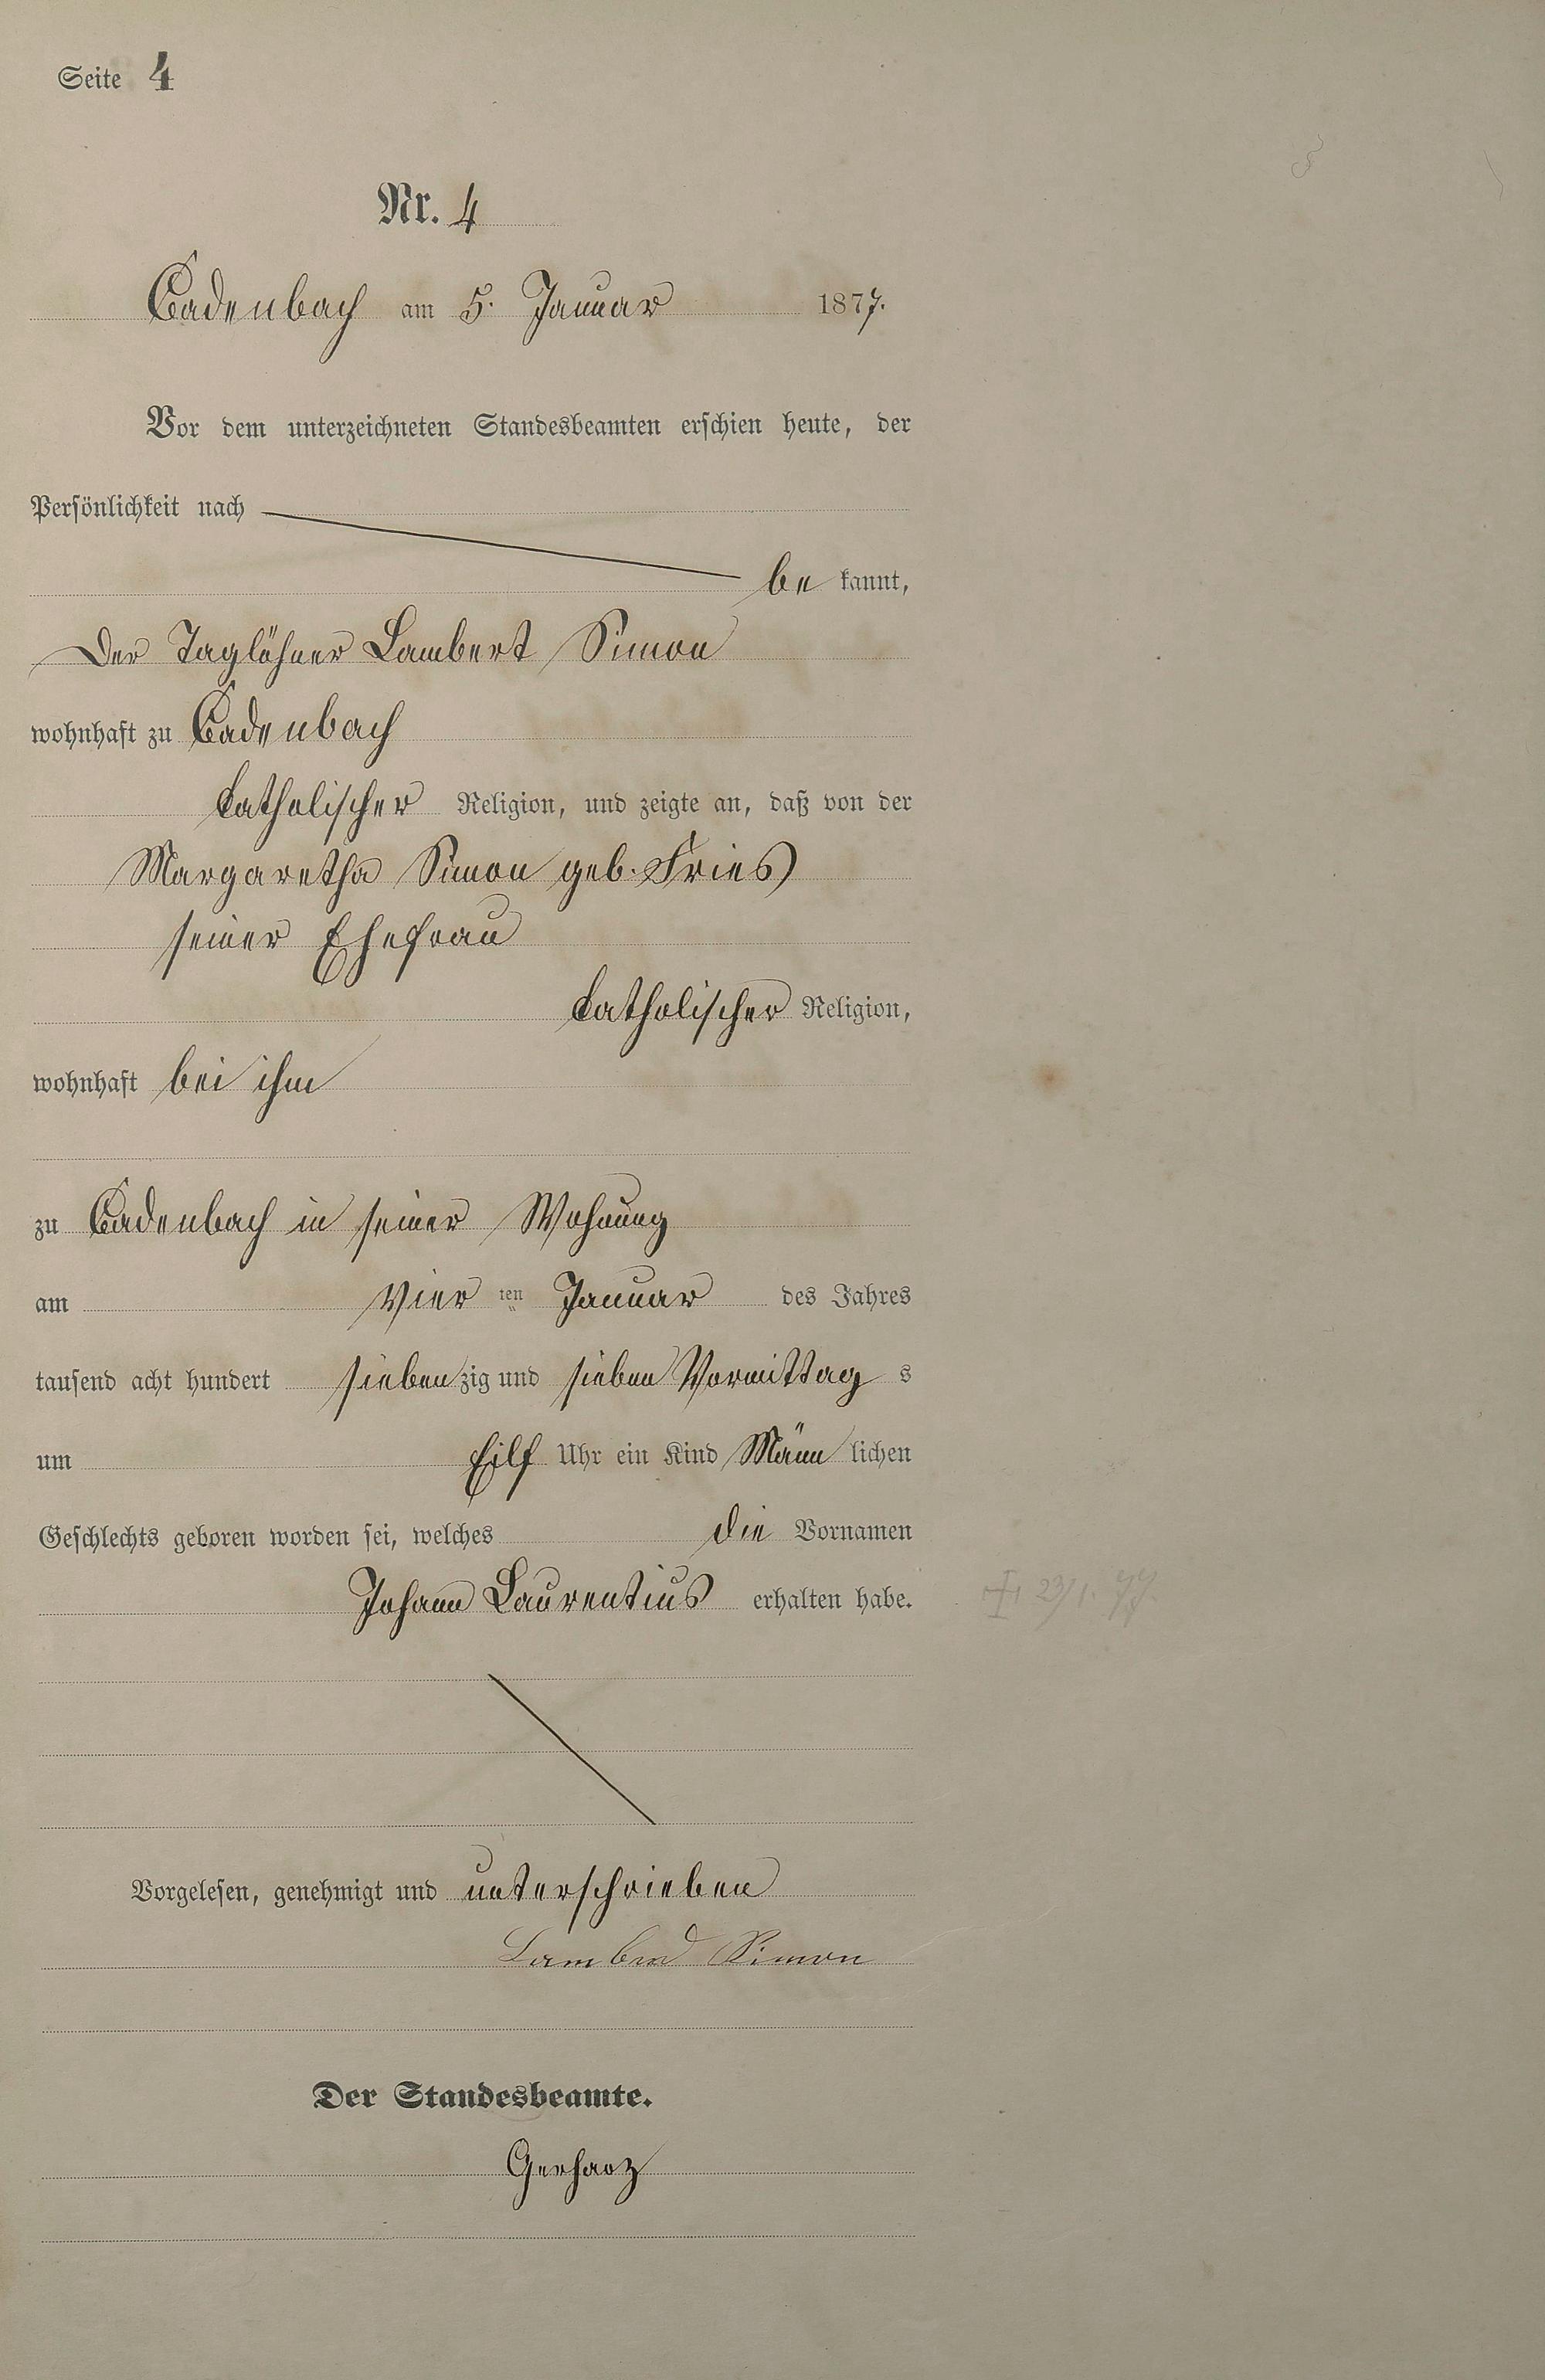 Seite 4
Nr. 4
Cadenbach am 5. Januar 1877.
Vor dem unterzeichneten Standesbeamten erschien heute, der
Persönlichkeit nach
be kannt,
Der Taglöhner Lambert Simon
wohnhaft zu Cadenbach
katholischer Religion, und zeigte an, daß von der
Margaretha Simon geb. Fries
seiner Ehefrau
katholischer Religion,
wohnhaft bei ihm
zu Cadenbach in seiner Wohnung
am Vier ten Januar des Jahres
tausend acht hundert sieben zig und sieben Vormittag s
um Eilf Uhr ein Kind Männ lichen
Geschlechts geboren worden sei, welches die Vornamen
Johann Laurentius erhalten habe.
† 23/1. 77.
Vorgelesen, genehmigt und unterschrieben
Simon
Der Standesbeamte.
Gerharz